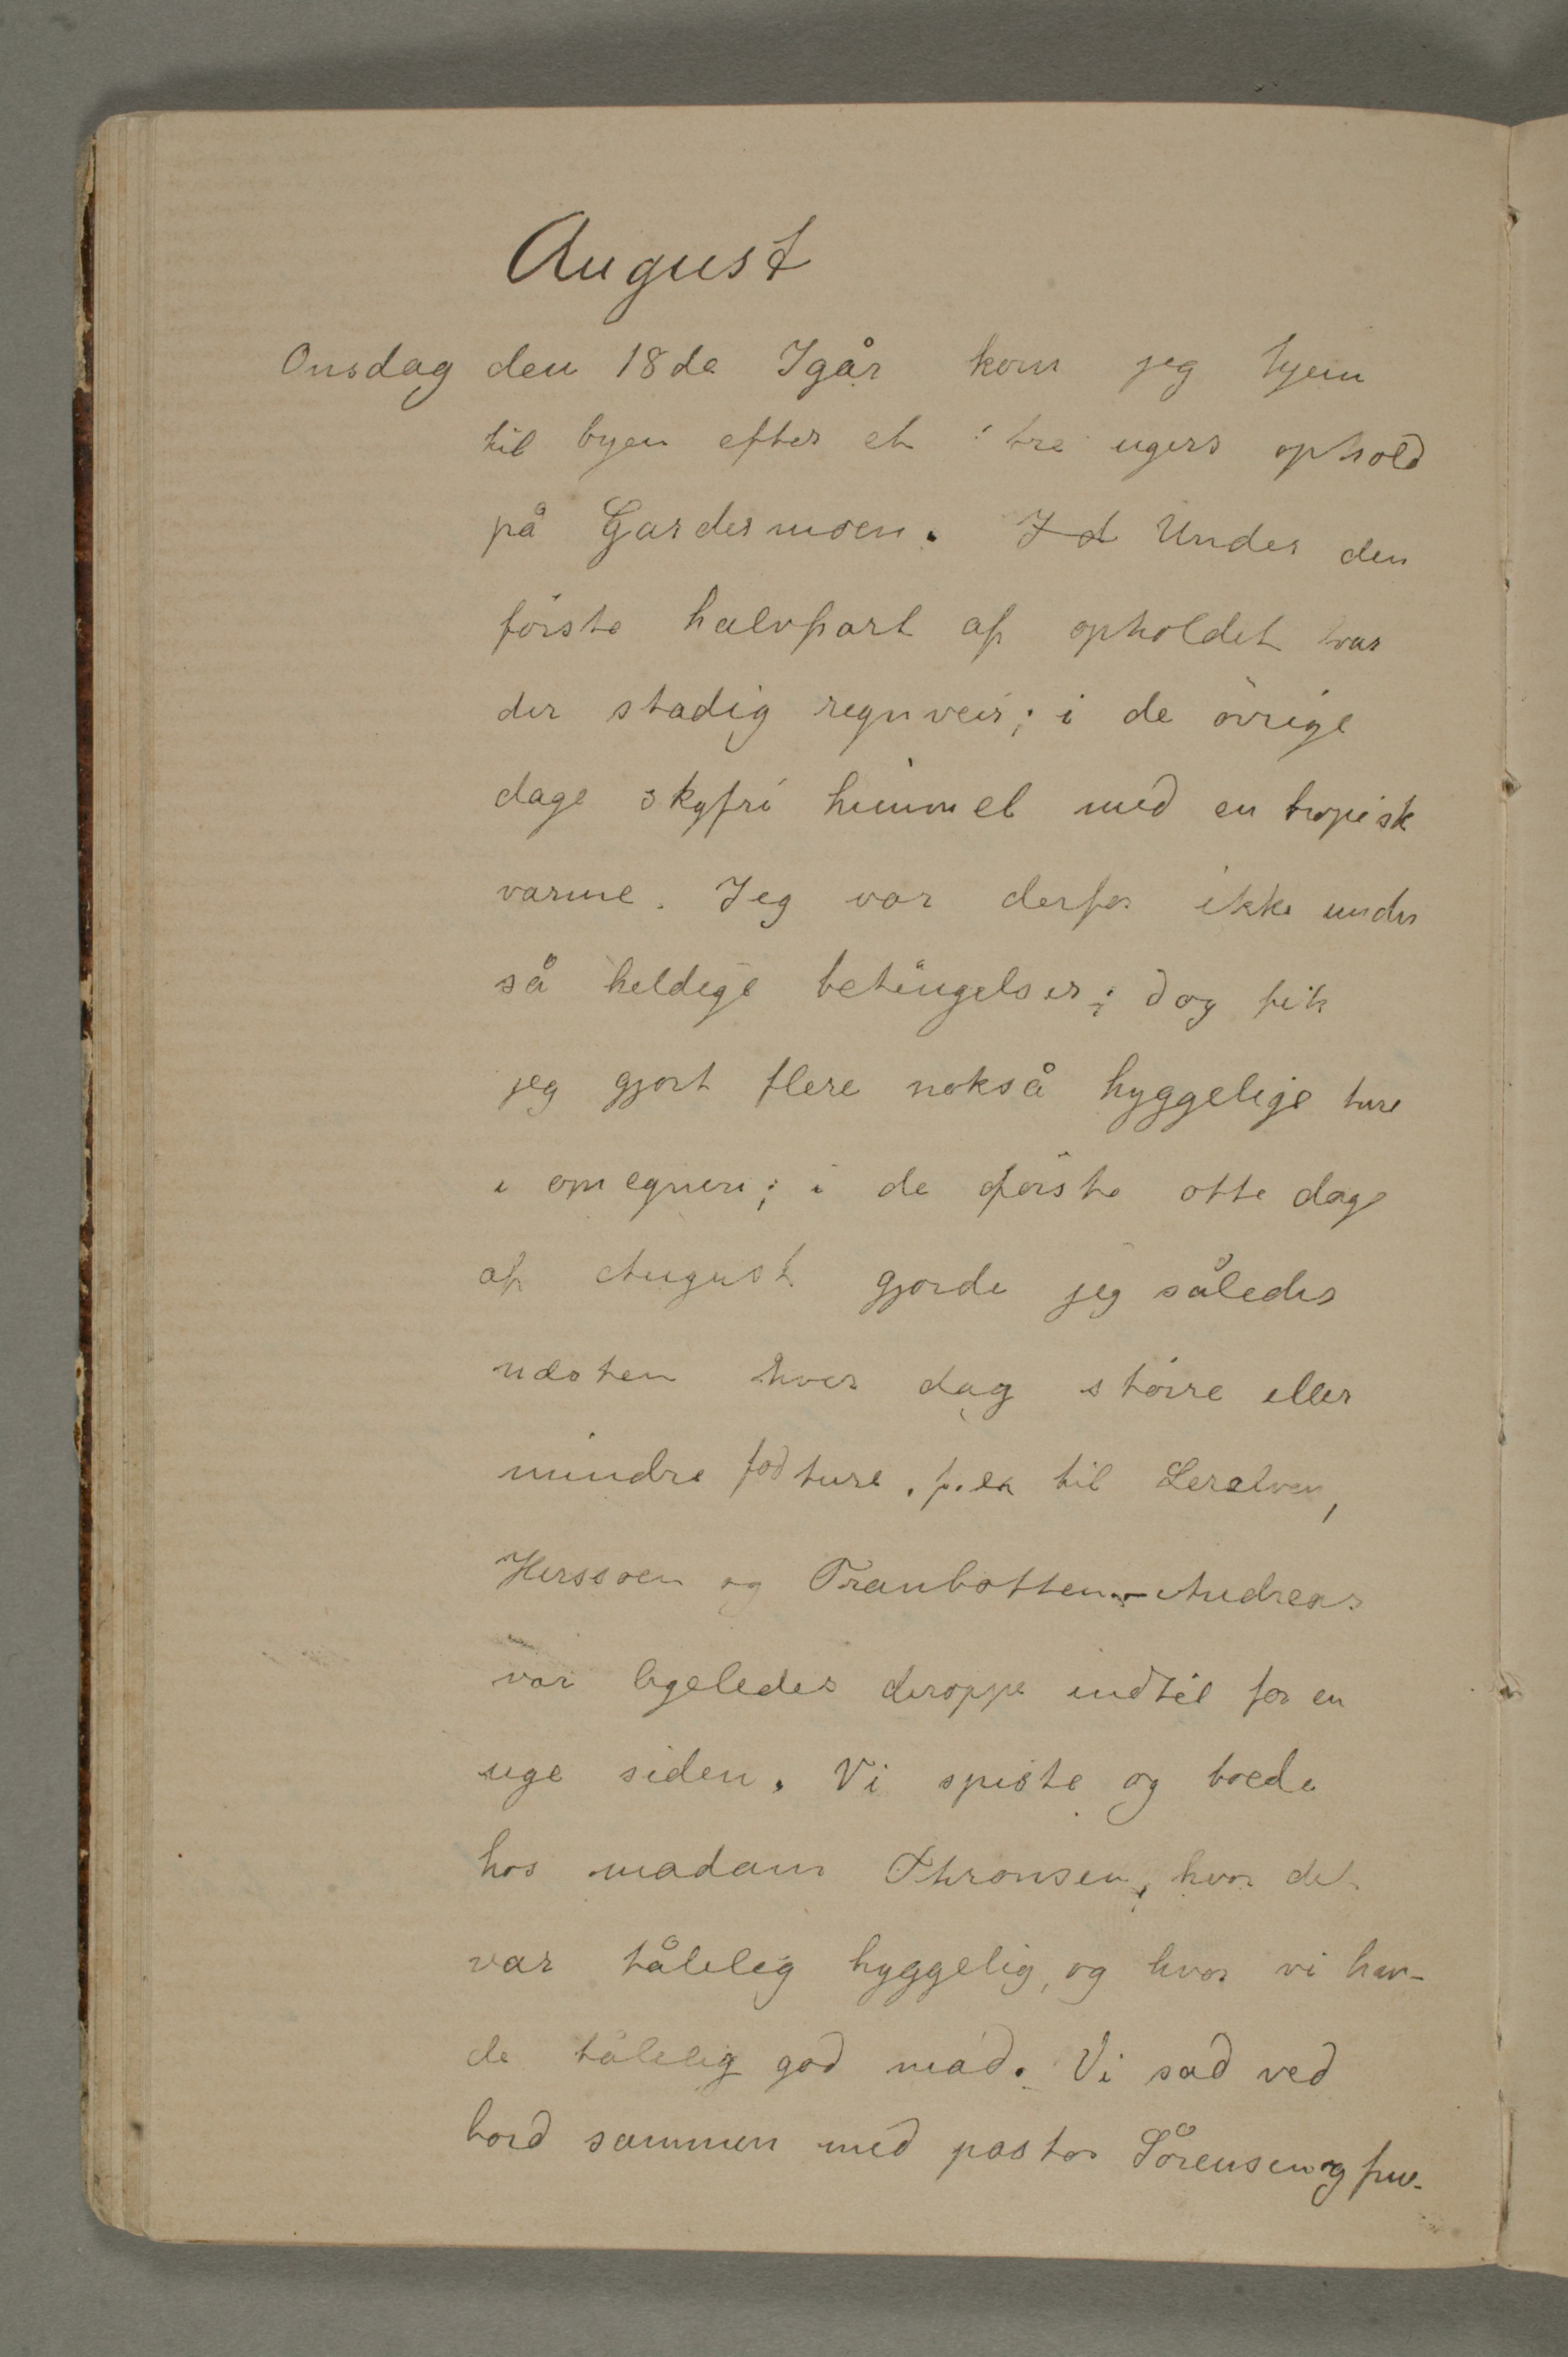 August
Onsdag den 18de Igår kom jeg hjem
til byen efter et tre ugers ophold
på Gardermoen. Under den
første halvpart af opholdet var
der stadig regnveir; i de øvrige
dage skyfri himmel med en tropisk
varme. Jeg var derfor ikke under
så heldige betingelser; dog fik
jeg gjort flere nokså hyggelige ture
i omegnen; i de første otte dage
af August gjorde jeg således
næsten hver dag større eller
mindre fodture, f. ex til Leraelven,
Herssoen og Tranbotten. – Andreas
var ligeledes deroppe indtil for en
uge siden. Vi spiste og boede
hos madam Thronsen, hvor det
var tålelig hyggelig, og hvor vi hav-
de tålelig god mad. Vi sad ved
bord sammen med pastor Sörensen og frue.